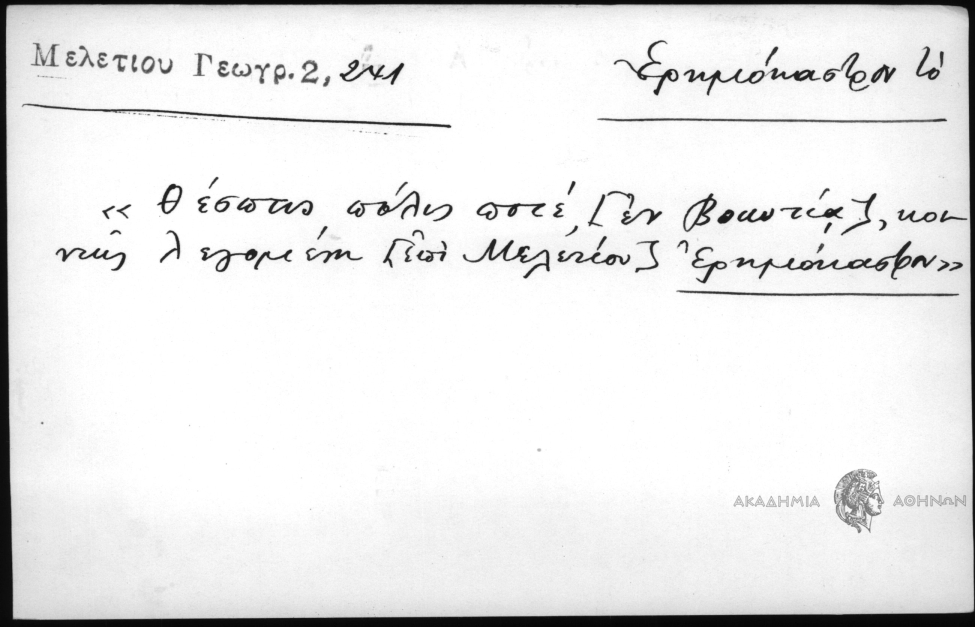 Μελετίου Γεωγρ. 2, 241
Ἐρημόκαστρον τό
« Θέσπις πόλις ποτέ, [ἐν Βοιωτίᾳ], κοι
νῶς λεγομένη [ἐπὶ Μελετίου] Ἐρημόκαστρον»
ΑΚΑΔΗΜΙΑ ΑΘΗΝΩΝ